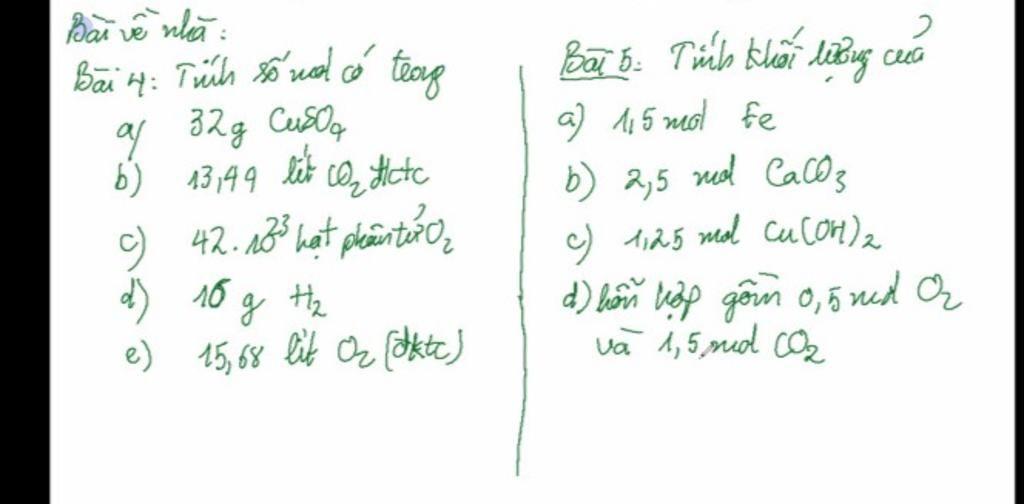 Bài về nhà:
Bài 4: Tính số mol có trong
a) 32g CuSO₄
b) 13,44 lít CO₂ đktc
c) 42.10²³ hạt phân tử O₂
d) 16 g H₂
e) 15,68 lít O₂ (đktc)
Bài 5: Tính khối lượng của
a) 1,5 mol Fe
b) 2,5 mol CaCO₃
c) 1,25 mol Cu(OH)₂
d) hỗn hợp gồm 0,5 mol O₂
và 1,5 mol CO₂